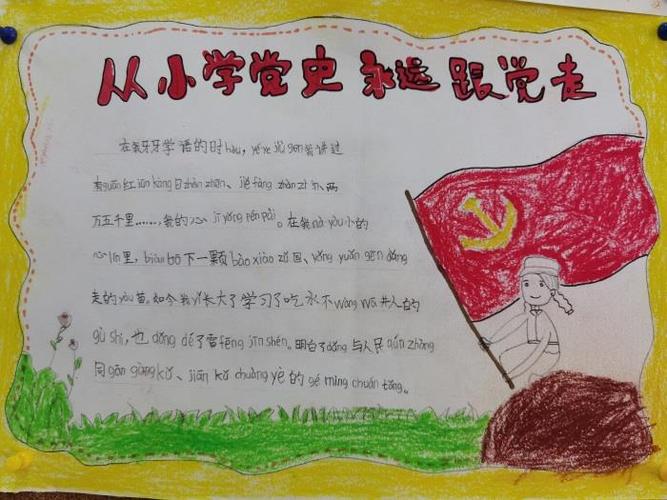 从小学党史 永远跟党走
在我牙牙学语的时hòu，yéye jiù gēn我讲过
有guān红jūn kàng日zhàn zhēng、jiě fàng zhàn zhēng、两
万五千里……我的心jī yáng pén pài。在我nà yòu小的
心lín里，biàn bō下一颗bào xiào zǔ国、yǒng yuǎn gēn dǎng
走的yòu苗。如今我yǐ长大了学习了吃水不wàng wā井人的
gù shi，也dǒng dé了雷fēng jīn shén。明白了dǎng与人民qún zhòng
同gān gòng kǔ、jiān kǔ chuàng yè的gé mìng chuán tǒng。